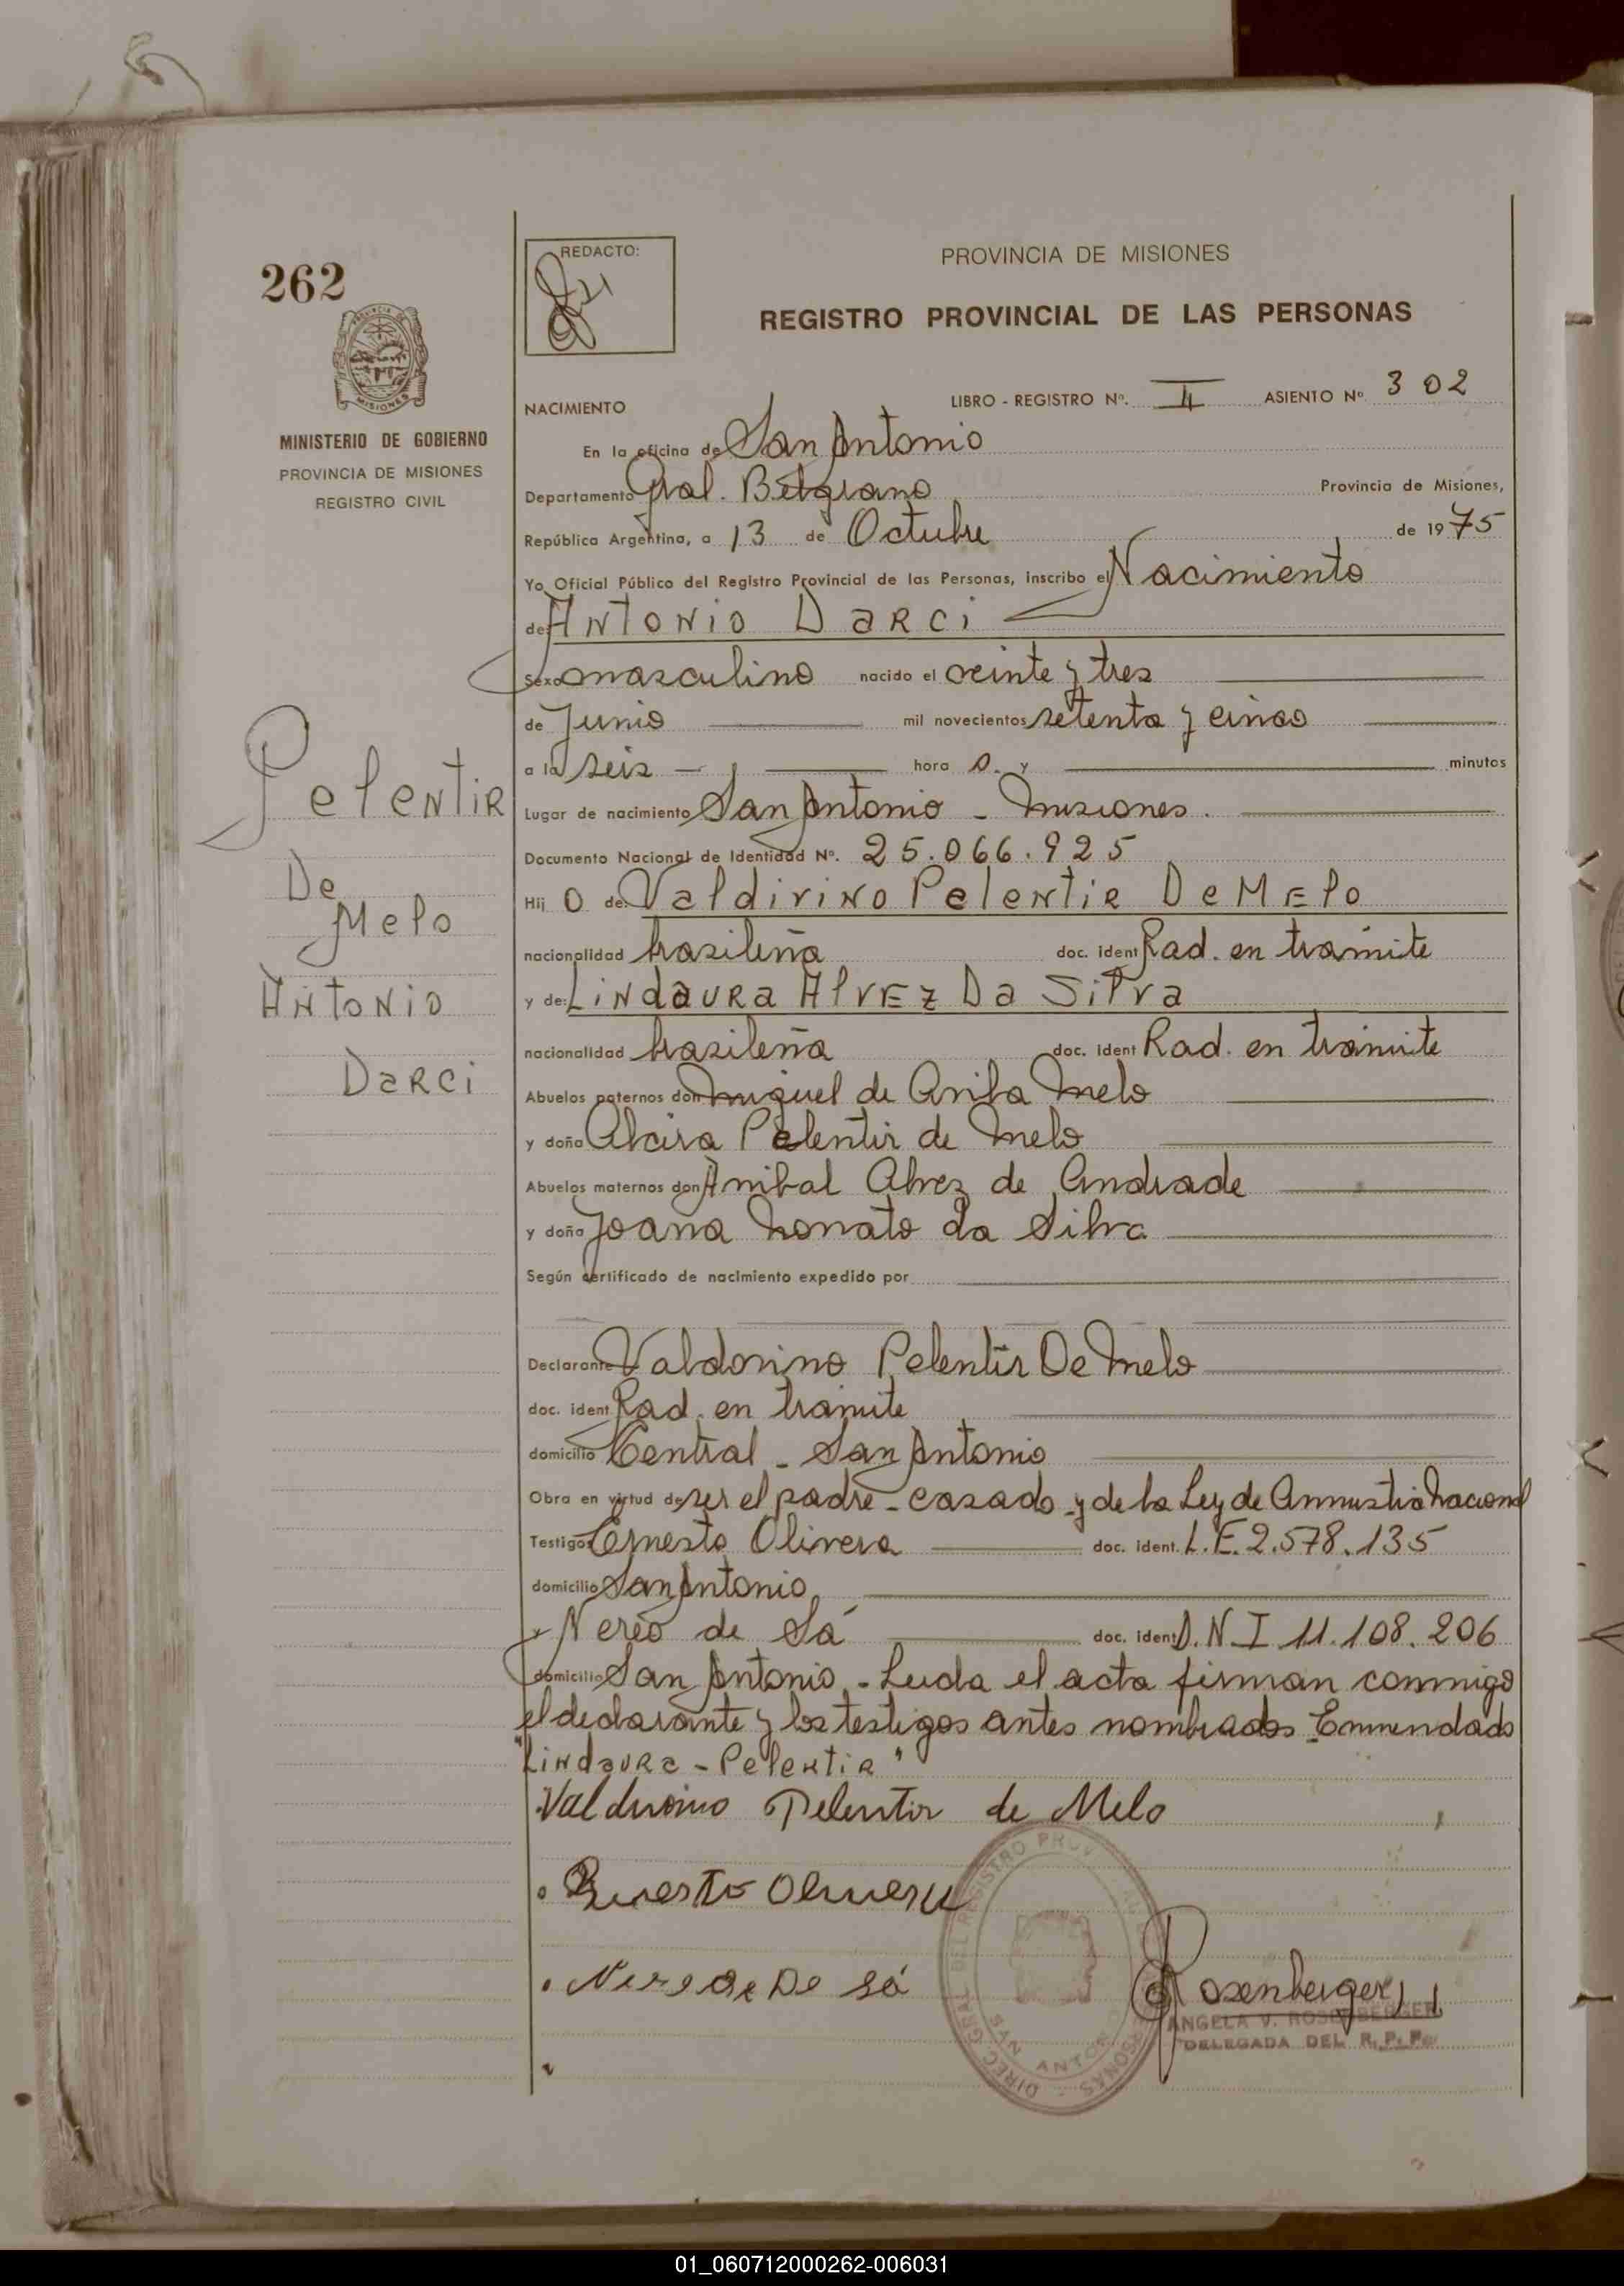 262
REDACTO:
PROVINCIA DE MISIONES
REGISTRO PROVINCIAL DE LAS PERSONAS
MISIONES
MINISTERIO DE GOBIERNO
PROVINCIA DE MISIONES
REGISTRO CIVIL
NACIMIENTO LIBRO - REGISTRO Nº. II ASIENTO Nº 302
En la oficina de San Antonio
Departamento Gral. Belgrano Provincia de Misiones,
República Argentina, a 13 de Octubre de 1975
Yo Oficial Público del Registro Provincial de las Personas, inscribo el Nacimiento
de: ANTONIO DARCI
Sexo masculino nacido el veinte y tres
de Junio mil novecientos setenta y cinco
a la seis hora s. y minutos
Lugar de nacimiento San Antonio - Misiones.
Documento Nacional de Identidad Nº. 25.066.925
Hij o de: Valdirino Pelentir De Melo
nacionalidad brasileña doc. ident Rad. en tramite
y de: Lindaura Alvez Da Silva
nacionalidad brasileña doc. ident Rad. en trámite
Abuelos paternos don Miguel de Avila Melo
y doña Alcira Pelentir de Melo
Abuelos maternos don Anibal Alvez de Andrade
y doña Joana Nonato da Silva
Según certificado de nacimiento expedido por
Declarante Valdorino Pelentir De Melo
doc. ident Rad. en tramite
domicilio Central - San Antonio
Obra en virtud de ser el padre - casado y de la Ley de Amnustia Nacional
Testigos Ernesto Olivera doc. ident. L.E. 2.578.135
domicilio San Antonio
y Nereo de Sá doc. ident D.N.I 11.108.206
domicilio San Antonio - Leida el acta firman conmigo
el declarante y los testigos antes nombrados Enmendado
"Lindaura - Pelentir"
Pelentir
De
Melo
Antonio
Darci
Valdirino Pelentir de Melo
Olivera
De Sá
DIREC. GRAL. DEL REGISTRO PROV. PERSONAS
SAN ANTONIO
Rosenberger
ANGELA V. ROSENBERGER
DELEGADA DEL R. P. P.
01_060712000262-006031